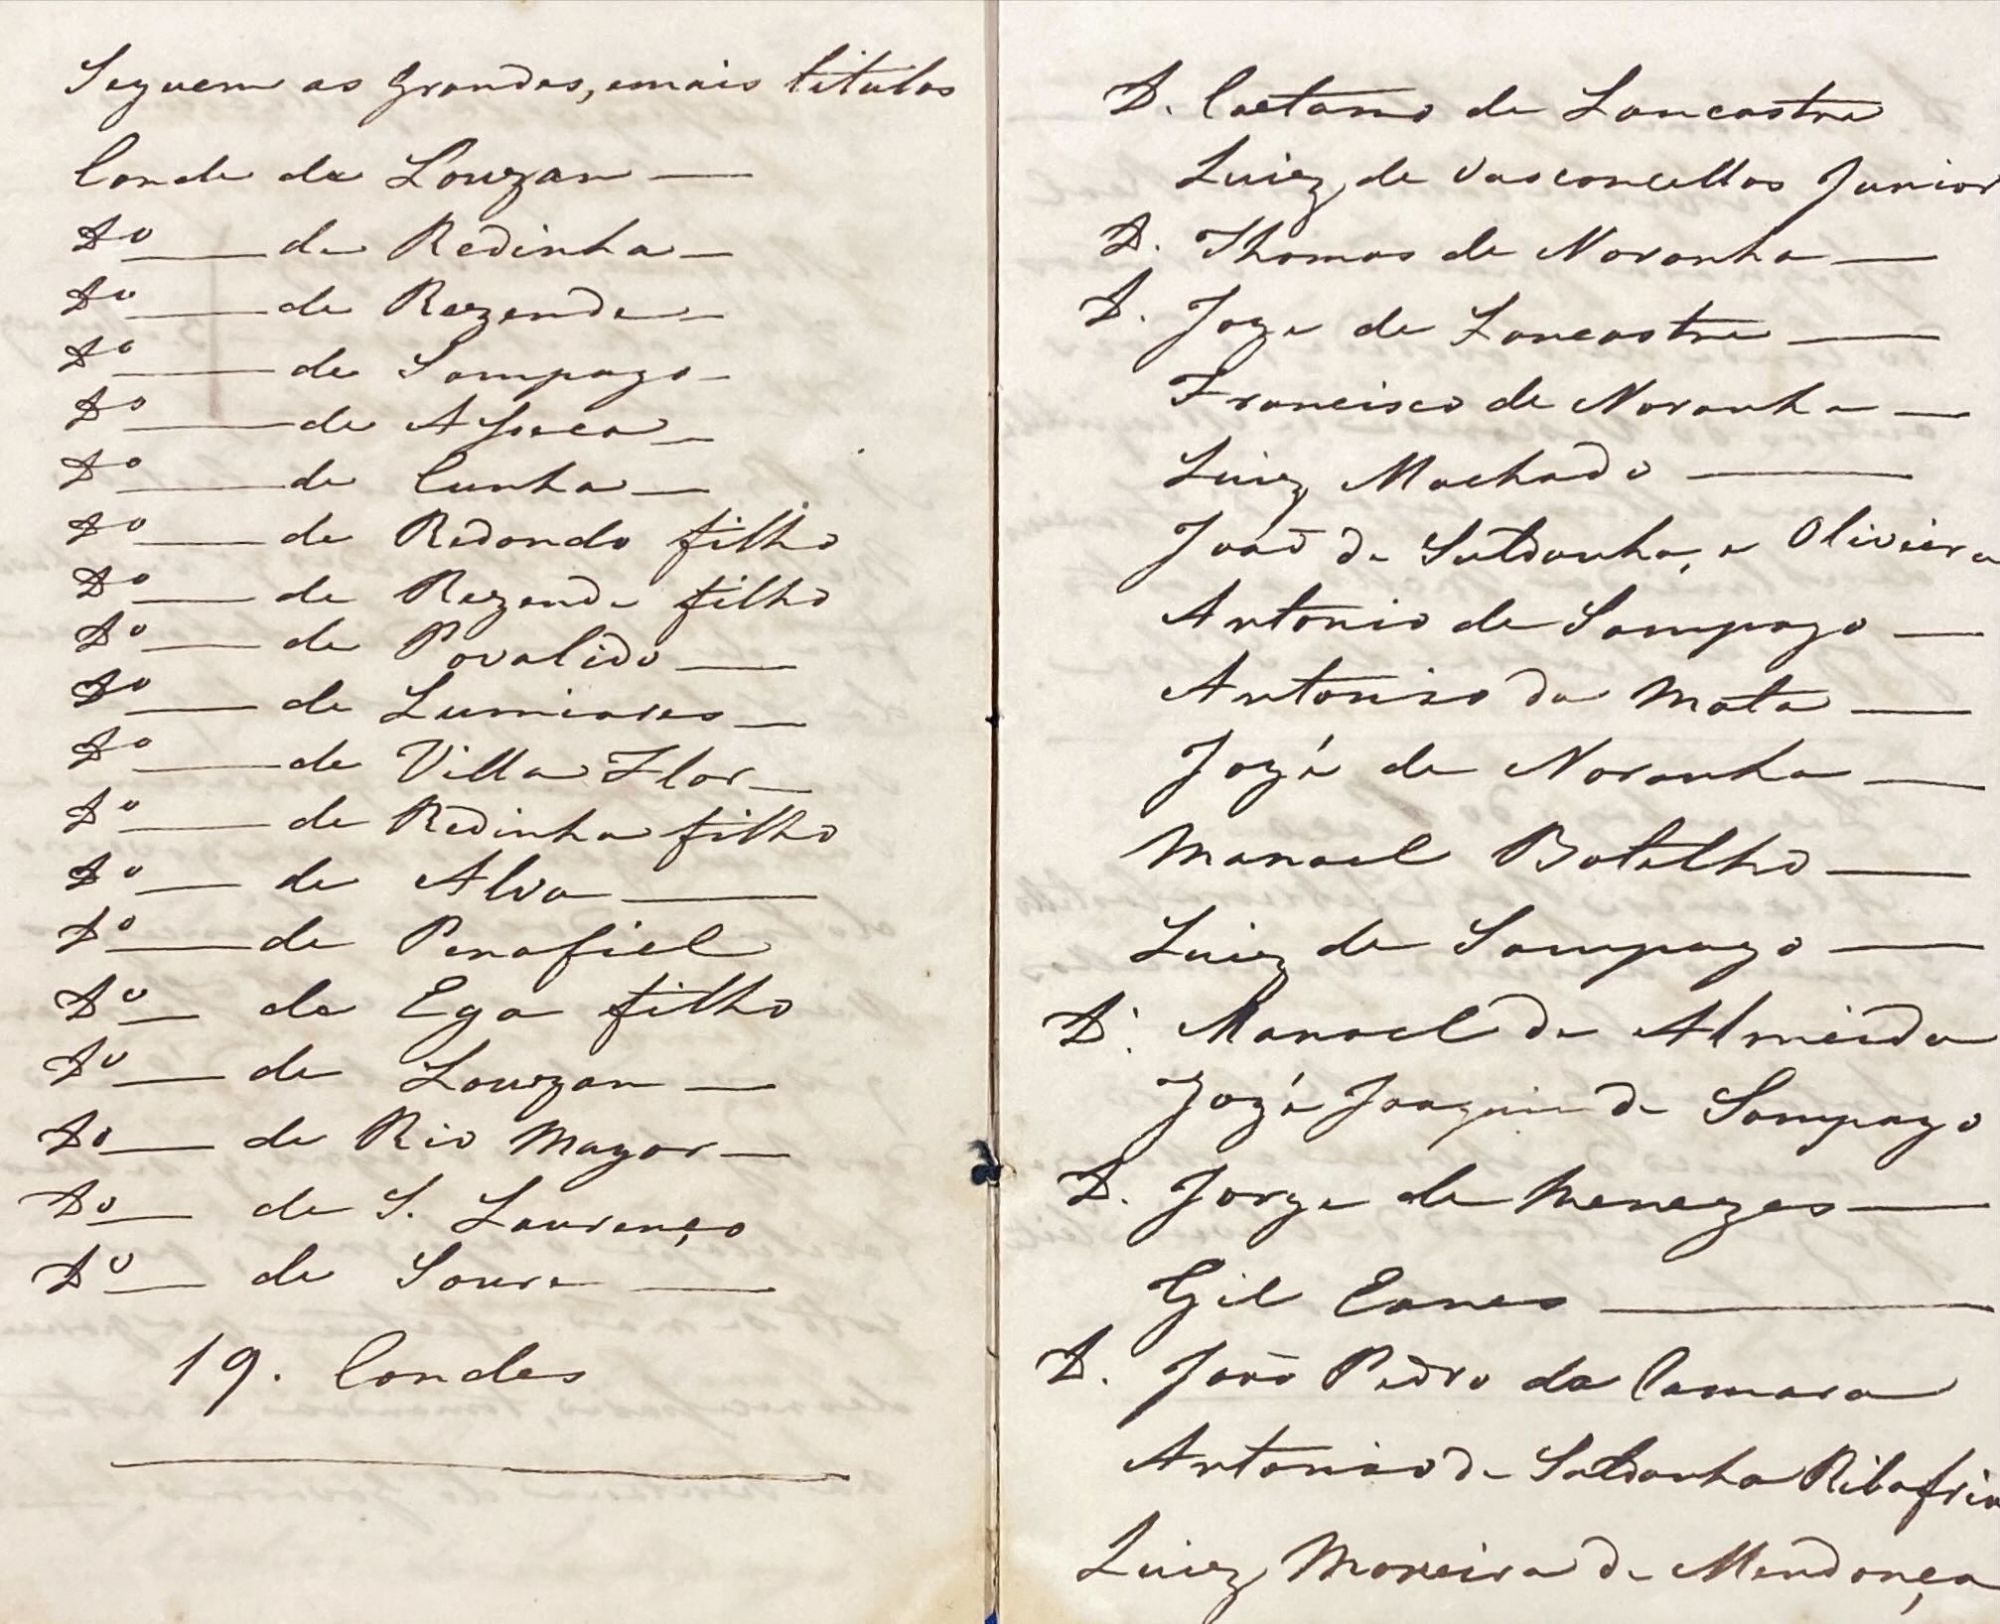 Seguem as Grandes, e mais titulos
Conde da Louzan —
Do — de Redinha —
Do — de Rezende —
Do — de Sampayo —
Do — de Asseca —
Do — da Cunha —
Do — de Redondo filho
Do — de Rezende filho
Do — de Povalido —
Do — de Lumiares —
Do — de Villa Flor —
Do — de Redinha filho
Do — de Alva —
Do — de Penafiel
Do — da Ega filho
Do — de Louzan —
Do — de Rio Mayor —
Do — de S. Lourenço
Do — de Soure —
19. Condes
D. Caetano de Lancastre
Luiz de Vasconcellos Junior
D. Thomas de Noronha —
D. Joze de Lancastre —
Francisco de Noronha —
Luiz Machado —
João de Saldanha, e Oliviera
Antonio de Sampayo —
Antonio da Mata —
Jozé de Noronha —
Manoel Botelho —
Luiz de Sampayo —
D. Manoel de Almeida
Jozé Joaquim de Sampayo
D. Jorge de Menezes —
Gil Eanes —
D. João Pedro da Camara
Antonio de Saldanha Ribafria
Luiz Moreira de Mendonça